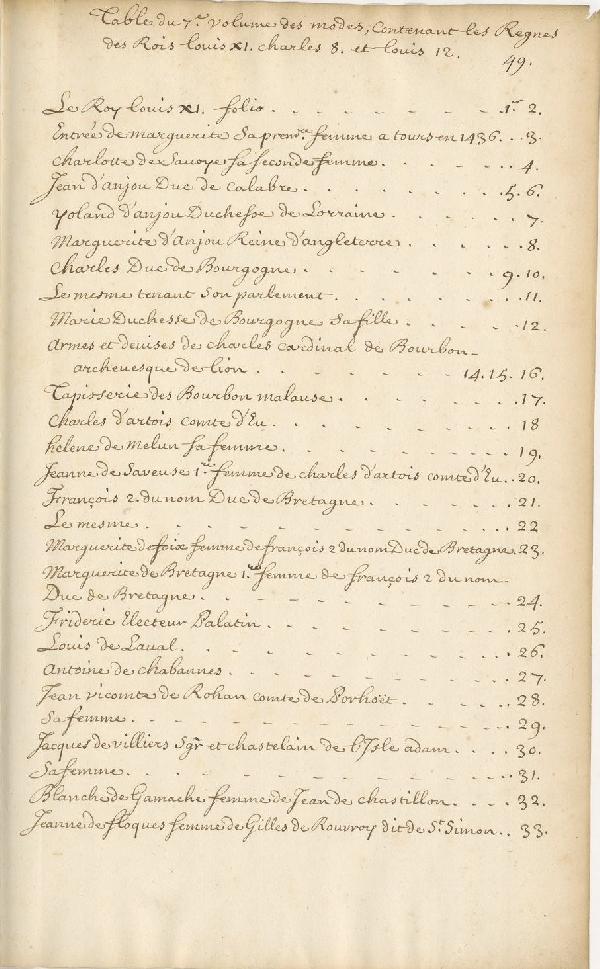 Table du 7.e volume des modes, Contenant les Regnes
des Rois louis XI. charles 8. et louis 12.
49.
Le Roy louis XI. folio . . . . . . . 1.r 2.
Entrée de marguerite Sa prem.re femme a tours en 1436. . . 3.
charlotte de Savoye sa seconde femme. . . . . . 4.
Jean d'anjou Duc de calabre. . . . . . . . 5. 6.
yoland d'anjou Duchesse de Lorraine. . . . . . 7.
Marguerite d'anjou Reine d'angleterre. . . . . . 8.
charles Duc de Bourgogne. . . . . . . 9. 10.
Le mesme tenant Son parlement. . . . . . . 11.
Marie Duchesse de Bourgogne Sa fille. . . . . . 12.
Armes et devises de charles cardinal de Bourbon
archevesque de lion . . . . . . . 14. 15. 16.
Tapisserie des Bourbon malause. . . . . . . 17.
Charles d'artois comte d'Eu. . . . . . . . 18
helene de melun sa femme. . . . . . . . 19.
Jeanne de Saveuse 1.re femme de charles d'artois comte d'Eu. . 20.
François 2. du nom Duc de Bretagne. . . . . . 21.
Le mesme. . . . . . . . . . . 22
Marguerite de foix femme de françois 2 du nom Duc de Bretagne. 23.
Marguerite de Bretagne 1.re femme de françois 2 du nom
Duc de Bretagne. . . . . . . . . . 24.
Frideric Electeur Palatin. . . . . . . . . 25.
Louis de Laual. . . . . . . . . . . 26.
Antoine de chabannes. . . . . . . . . 27.
Jean vicomte de Rohan comte de Porhoët. . . . . 28.
Sa femme. . . . . . . . . . . . 29.
Jacques de villiers Sgr et chastelain de l'Isle adam. . . . 30.
Sa femme. . . . . . . . . . . . 31.
Blanche de Gamache femme de Jean de chastillon. . . . 32.
Jeanne de floques femme de Gilles de Rouvroy dit de St. Simon. . 33.